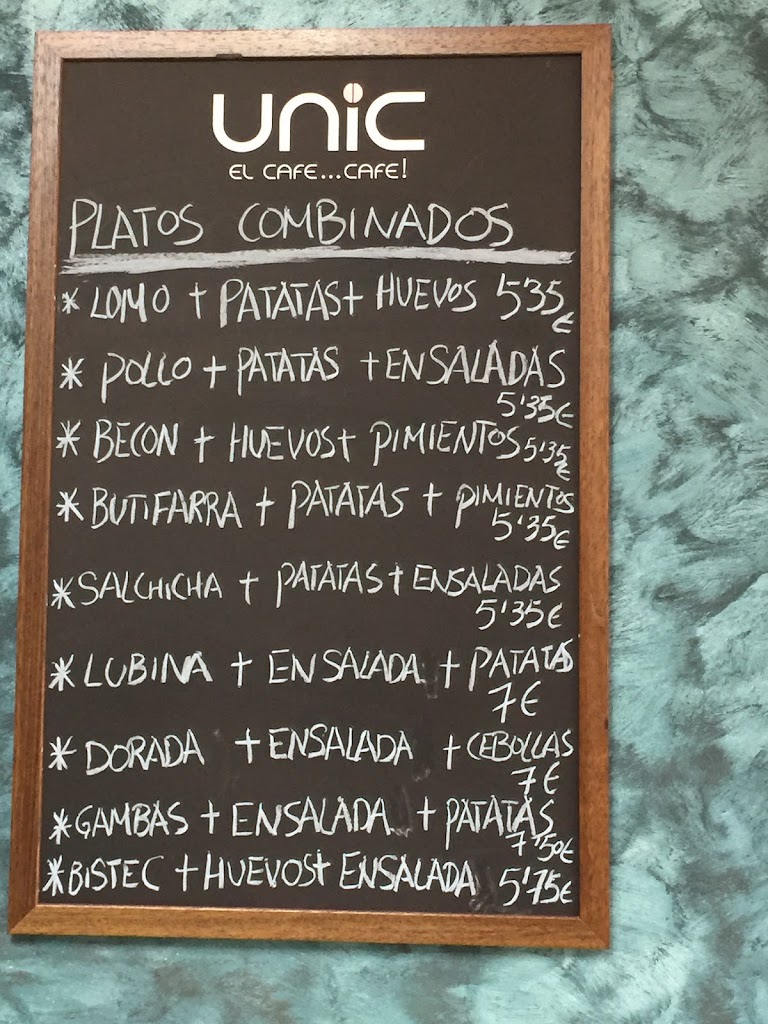 UNIC
EL CAFE...CAFE!
PLATOS COMBINADOS
* LOMO + PATATAS + HUEVOS 5'35 €
* POLLO + PATATAS + ENSALADAS
5'35€
* BECON + HUEVOS + PIMIENTOS 5'35 €
* BUTIFARRA + PATATAS + PIMIENTOS
5'35€
* SALCHICHA + PATATAS + ENSALADAS
5'35€
* LUBINA + ENSALADA + PATATAS
7€
* DORADA + ENSALADA + CEBOLLAS
7€
* GAMBAS + ENSALADA + PATATAS
7'50€
* BISTEC + HUEVOS + ENSALADA 5'75€